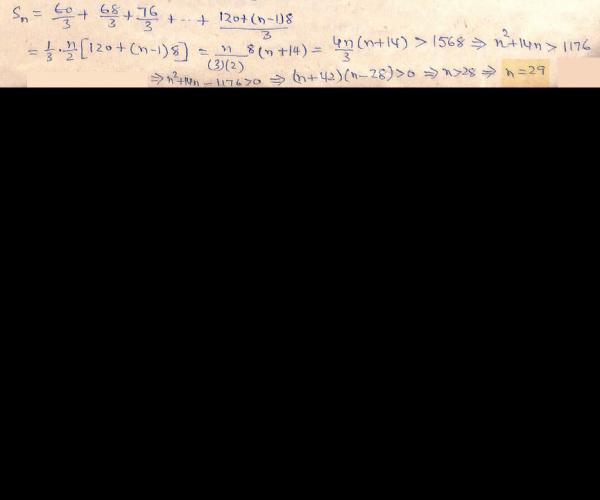 Sn = 60/3 + 68/3 + 76/3 + ... + 120+(n-1)8/3
= 1/3 · n/2 [120+(n-1)8] = n/(3)(2) 8(n+14) = 4n/3 (n+14) > 1568 ⇒ n²+14n > 1176
⇒ n²+14n - 1176>0 ⇒ (n+42)(n-28)>0 ⇒ n>28 ⇒ n=29